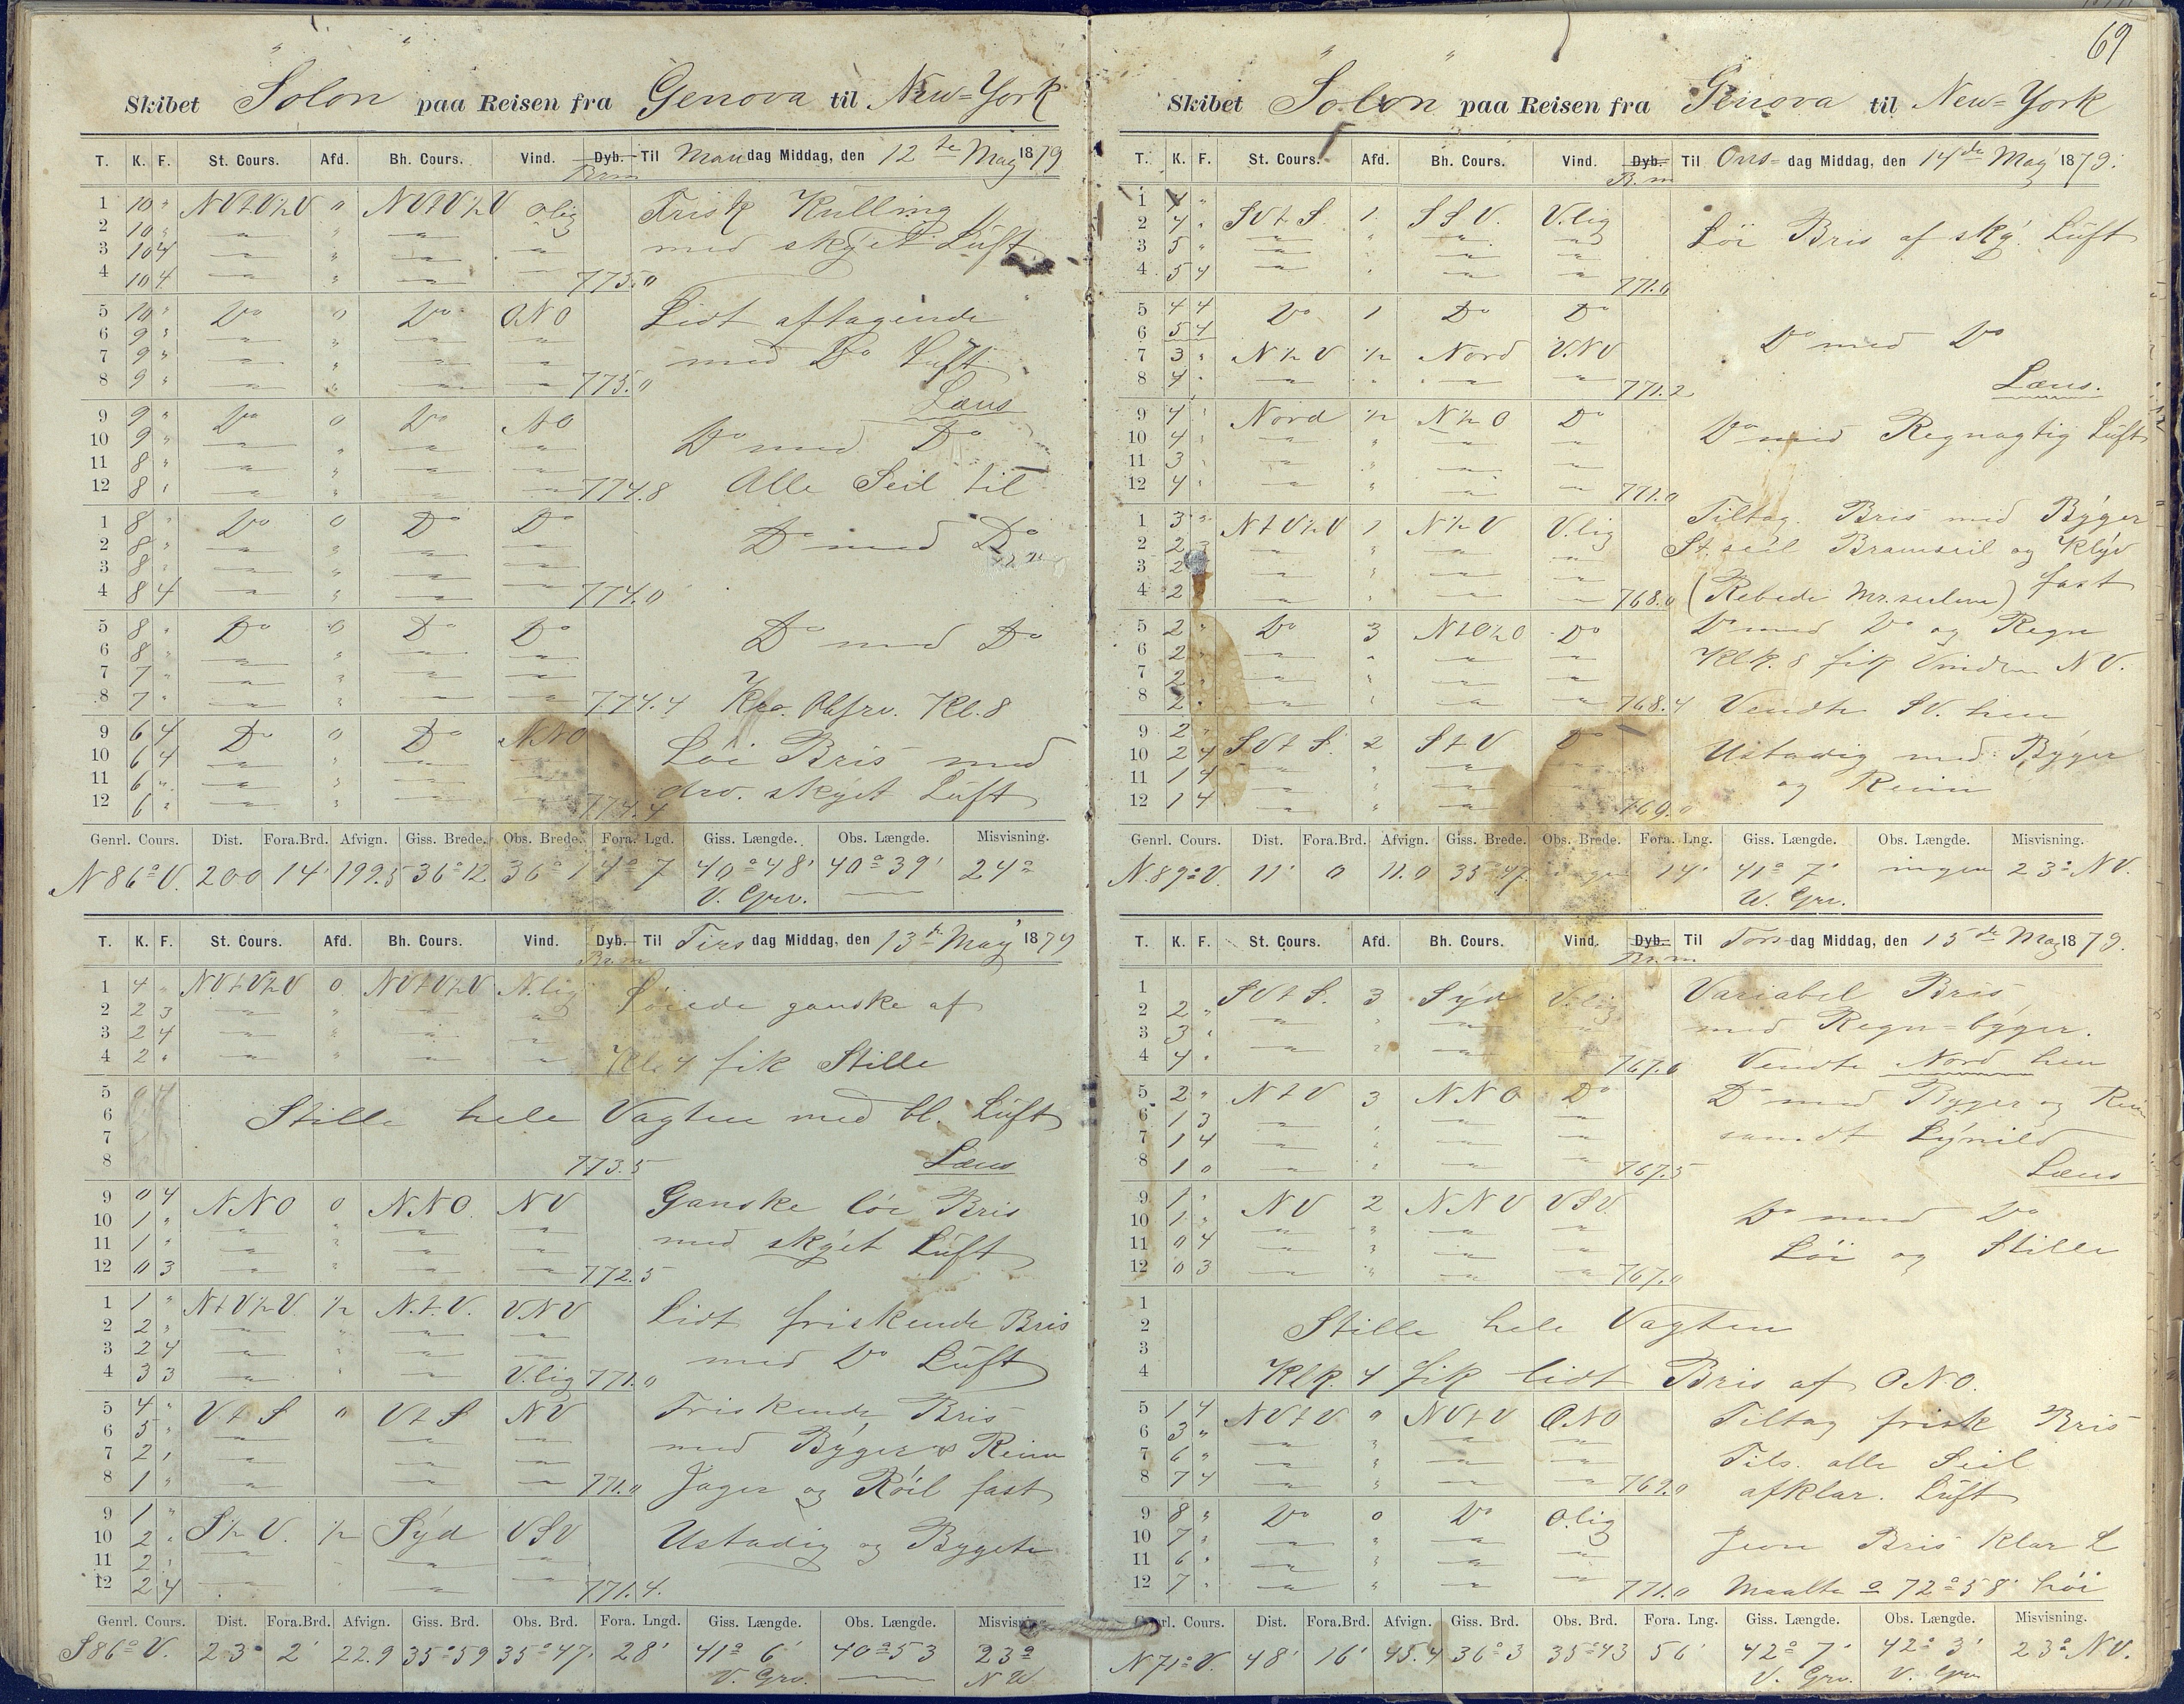 Skibet "Solon" paa Reisen fra Genova til New=York
T. K. F. St. Cours. Afd. Bh. Cours. Vind. Dyb. Til Mandag Middag, den 12te May 1879
Brm
1 10 " NVtV½V 0 NVtV½V O.lig Frisk Kulling
2 10 " " " " "
3 10 4 " " " " med skyet Luft
4 10 4 " " " " 775.0
5 10 " Do 0 Do ONO Lidt aftagende
6 9 " " " " "
7 9 " " " " " med Do Luft
8 9 " " " " " 775.0
Læns
9 9 " Do 0 Do NO Do med Do
10 9 " " " " "
11 8 " " " " "
12 8 " " " " " 774.8 Alle Seil til
1 8 " Do 0 Do Do Do med Do
2 8 " " " " "
3 8 " " " " "
4 8 4 " " " " 774.0
5 8 " Do 0 Do Do Do med Do
6 8 " " " " "
7 7 " " " " "
8 7 " " " " " 774.4 Kro. Obsrv. Kl. 8
9 6 4 Do 0 Do NNO Løi Bris med
10 6 4 " " " "
11 6 " " " " " drv. skyet Luft
12 6 " " " " " 774.4
Genrl. Cours. Dist. Fora.Brd. Afvign. Giss. Brede. Obs. Brede. Fora. Lgd. Giss. Længde. Obs. Længde. Misvisning.
N86°V. 200 14' 199.5 36°12 36°1 4°7 40°48' 40°39' 24°
V. Grv.
T. K. F. St. Cours. Afd. Bh. Cours. Vind. Dyb. Til Tirsdag Middag, den 13de May 1879
Br.m
1 4 " NVtV½V 0 NVtV½V N.lig Løiede ganske af
2 2 3 " " " "
3 2 4 " " " "
4 2 " " " " " Kl. 4 fik Stille
5 0 4
6 Stille hele Vagten med bl. Luft
7
8 773.5 Læns
9 0 4 NNO 0 NNO NV Ganske løi Bris
10 1 " " " " "
11 1 " " " " " med skyet Luft
12 0 3 " " " " 772.5
1 1 " NtV½V ½ N.t.V. VNV Lidt friskende Bris
2 2 " " " " "
3 2 4 " " " " med Do Luft
4 3 3 " " " V.lig 771.0
5 4 " VtS 0 VtS NV Friskende Bris
6 5 " " " "
7 2 " " " " med Byger & Reinn
8 1 " " " " 771.0 Jager og Røil fast
9 1 "
10 2 " S½V. ½ Syd VSV Ustadig og Bygete
11 2 " " " "
12 2 4 " " 771.4.
Genrl. Cours. Dist. Fora.Brd. Afvign. Giss. Brd. Obs. Brd. Fora. Lngd. Giss. Længde. Obs. Længde. Misvisning.
S86°V. 23' 2' 22.9 35°59 35°47' 28' 41° 6' 40°53 23°
V. Grv. NV
69
Skibet "Solon" paa Reisen fra Genova til New=York
T. K. F. St. Cours. Afd. Bh. Cours. Vind. Dyb. Til Ons= dag Middag, den 14de May 1879.
B.m
1 4 "
2 4 " SVtS. 1. SSV. V.lig Løi Bris af sky. Luft
3 5 " " " " "
4 5 4 " " " " 771.0
5 4 4 Do 1 Do Do
6 5 4 Do med Do
7 3 " N½V ½ Nord VNV
8 4 " " " " " 771.2 Læns.
9 4 " Nord ½ N½O Do Do med Regnagtig Luft
10 4 " " " " "
11 3 " " " " "
12 4 " " " " " 771.0
1 3 " NtV½V 1 N½V V.lig Tiltag. Bris med Byger
2 2 3 " " " " St.seil Bramseil og Klyv
3 2 " " " " fast
4 2 " " " " 768.0 (Rebede Mr.seilene)
5 2 " Do 3 NtO½O Do Do med Do og Regn
6 2 " " " " " Klk. 8 fik Vinden NV.
7 2 " " " "
8 2 " " " " 768.4 Vendte SV. hen
9 2 "
10 2 4 SVtS. 2 StV Do Ustadig med Byger
11 1 4 " " " " og Reinn
12 1 4 " " " " 769.0
Genrl. Cours. Dist. Fora.Brd. Afvign. Giss. Brede. Obs. Brede. Fora. Lng. Giss. Længde. Obs. Længde. Misvisning.
N.89°V. 11' 0 11.0 35°47' ingen 14' 41° 7' ingen 23° NV.
W. Grv.
T. K. F. St. Cours. Afd. Bh. Cours. Vind. Dyb. Til Torsdag Middag, den 15de May 1879.
Br.m
1 SVtS. 3 Syd V.lig Variabel Bris
2 2 "
3 3 " " " " " med Regn=byger.
4 4 " " " " 767.6 Vendte Nord hen
5 2 " NtV 3 NNO Do Do med Byger og Reinn
6 1 3 " " " "
7 1 4 " " " " samdt Lynild
8 1 0 " " " " 767.5 Læns
9 1 " NV 2 NNV VSV. Do med Do
10 1 " " " " "
11 0 4 " " " " Løi og Stille
12 0 3 " " " " 767.0
1
2 Stille hele Vagten
3
4 Klk. 4 fik lidt Bris af ONO.
5 1 4 NVtV 0 NVtV ONO Tiltag frisk Bris
6 3 " " " " "
7 6 " " " " " Tils. alle Seil
8 7 4 " " " " 769.0 afklar. Luft
9 8 " Do 0 Do O.lig
10 7 " " " " " Jevn Bris klar L
11 6 " " " " "
12 7 " " " " " 771.0 Maalte 72°58' høi
Genrl. Cours. Dist. Fora.Brd. Afvign. Giss. Brd. Obs. Brd. Fora. Lng. Giss. Længde. Obs. Længde. Misvisning.
N71°V. 48' 16' 45.4 36°3 35°43 56' 42° 7' 42° 3' 23° NV.
V. Grv. V. Grv.